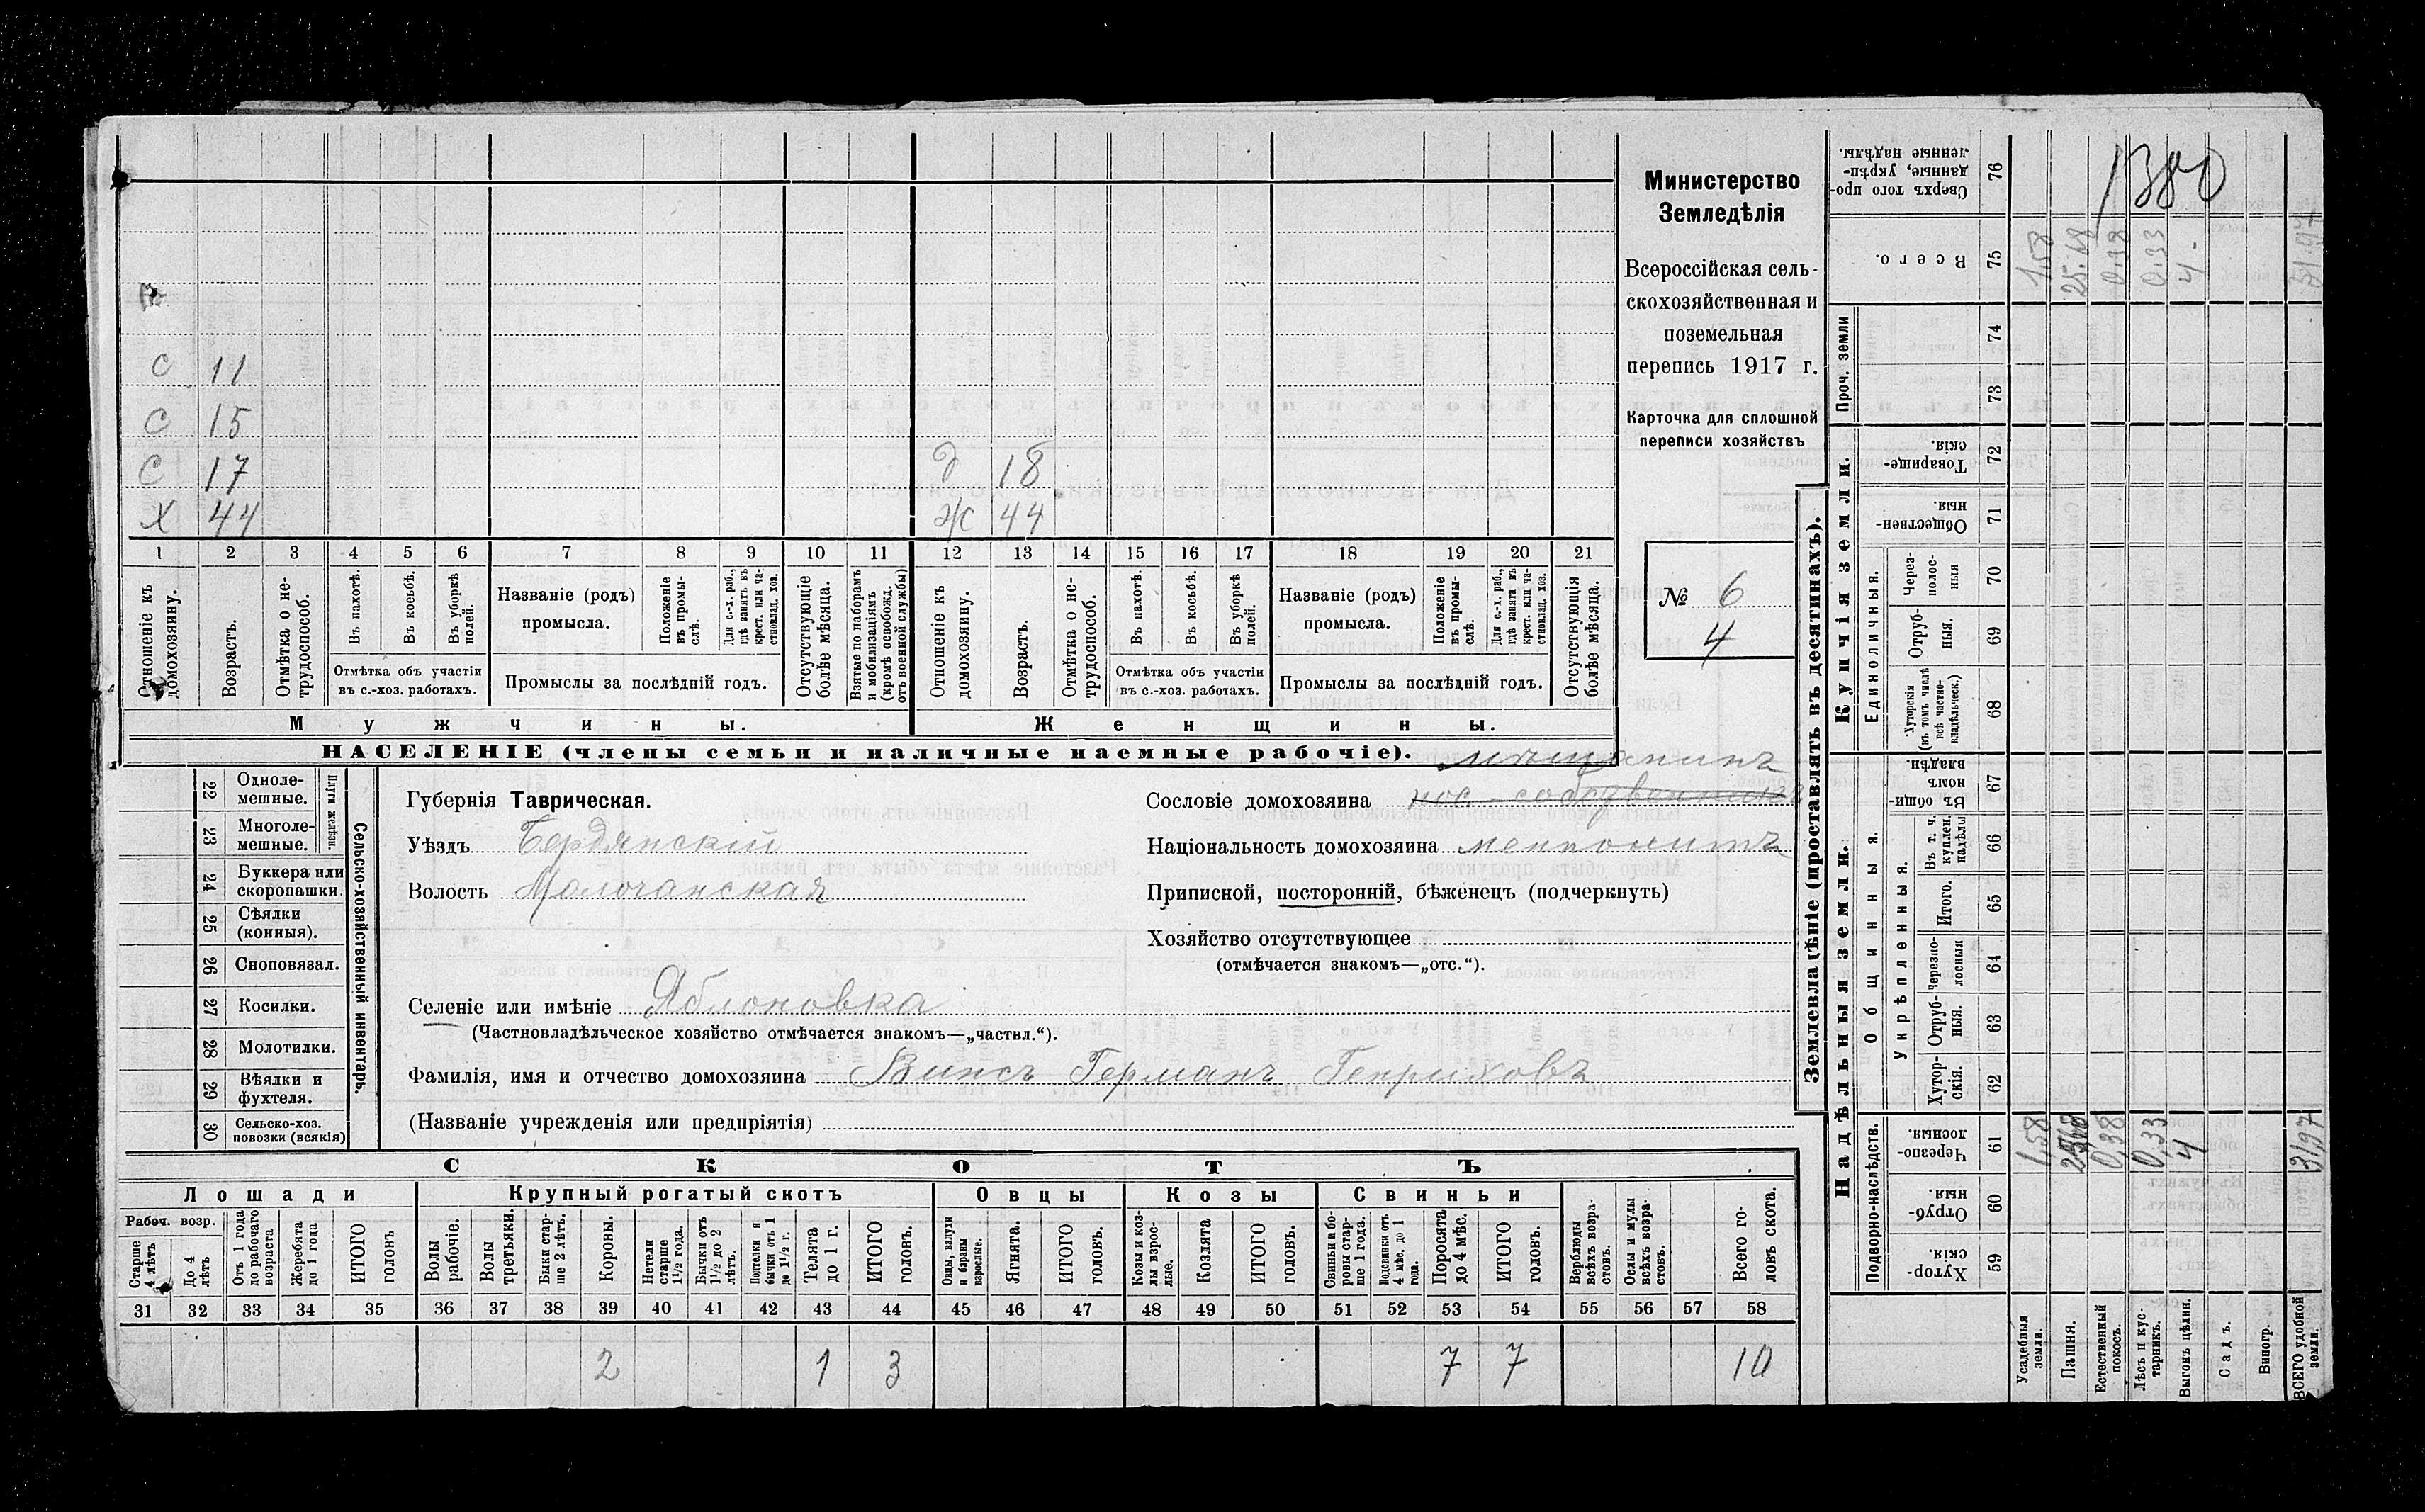 Министерство
Земледѣлія
Всероссійская сель-
скохозяйственная и
поземельная
перепись 1917 г.
Карточка для сплошной
переписи хозяйствъ
№ 6
4
С 11
С 15
С 17 Д 18
Х 44 Ж 44
1 2 3 4 5 6 7 8 9 10 11 12 13 14 15 16 17 18 19 20 21
Отношеніе къ домохозяину.
Возрастъ.
Отмѣтка о не-
трудоспособ.
Въ пахотѣ.
Въ косьбѣ.
Въ уборкѣ
полей.
Отмѣтка объ участіи
въ с.-хоз. работахъ.
Названіе (родъ)
промысла.
Положеніе
въ промы-
слѣ.
Для с.-х. раб.,
гдѣ занятъ въ
крест. или ча-
стновлад. хоз.
Промыслы за послѣдній годъ.
Отсутствующіе
болѣе мѣсяца.
Взятые по наборамъ
и мобилизаціямъ
(кромѣ освобожд.
отъ военной службы)
Отношеніе къ
домохозяину.
Возрастъ.
Отмѣтка о не-
трудоспособ.
Въ пахотѣ.
Въ косьбѣ.
Въ уборкѣ
полей.
Отмѣтка объ участіи
въ с.-хоз. работахъ.
Названіе (родъ)
промысла.
Положеніе
въ промы-
слѣ.
Для с.-х. раб.,
гдѣ занята въ
крест. или ча-
стновлад. хоз.
Промыслы за послѣдній годъ.
Отсутствующія
болѣе мѣсяца.
Мужчины. Женщины.
НАСЕЛЕНІЕ (члены семьи и наличные наемные рабочіе).
22 Одноле-
мешные.
23 Многоле-
мешные.
Плуги желѣзн.
24 Буккера или
скоропашки.
25 Сѣялки
(конныя).
26 Сноповязал.
27 Косилки.
28 Молотилки.
29 Вѣялки и
фухтеля.
30 Сельско-хоз.
повозки (всякія)
Сельско-хозяйственный инвентарь.
Губернія Таврическая.
Уѣздъ Бердянскій
Волость Молочанская
мѣщанинъ
Сословіе домохозяина пос.-собственникъ
Національность домохозяина меннонитъ
Приписной, посторонній, бѣженецъ (подчеркнуть)
Хозяйство отсутствующее
(отмѣчается знакомъ—„отс.“).
Селеніе или имѣніе Яблоновка
(Частновладѣльческое хозяйство отмѣчается знакомъ—„частвл.“).
Фамилія, имя и отчество домохозяина Винсъ Германъ Генриховъ
(Названіе учрежденія или предпріятія)
СКОТЪ
Лошади Крупный рогатый скотъ Овцы Козы Свиньи
Рабоч. возр.
Старше
4 лѣтъ
До 4
лѣтъ
Отъ 1 года
до рабочаго
возраста
Жеребята
до 1 года
ИТОГО
головъ
Волы
рабочіе.
Волы
третьяки.
Быки стар-
ше 2 лѣтъ.
Коровы.
Нетели
старше
1½ года.
Бычки отъ
1½ до 2
лѣтъ.
Подтелки и
бычки отъ 1
до 1½ г.
Телята
до 1 г.
ИТОГО
головъ.
Овцы, валухи
и бараны
взрослые.
Ягнята.
ИТОГО
головъ.
Козы и коз-
лы взрос-
лые.
Козлята
ИТОГО
головъ.
Свиньи и бо-
ровы стар-
ше 1 года.
Подсвинки отъ
4 мѣс. до 1
года.
Поросята
до 4 мѣс.
ИТОГО
головъ.
Верблюды
всѣхъ возра-
стовъ.
Ослы и мулы
всѣхъ возра-
стовъ.
Всего го-
ловъ скота.
31 32 33 34 35 36 37 38 39 40 41 42 43 44 45 46 47 48 49 50 51 52 53 54 55 56 57 58
2 1 3 7 7 10
Землевладѣніе (проставлять въ десятинахъ).
Надѣльныя земли. Купчія земли.
Проч. земли
1380
Сверхъ того про-
данные, укрѣп-
ленные надѣлы.
76
Всего. 75 1,58 25.68 0.38 0.33 4. 31.97
74
73
Товарище-
скія. 72
Обществен-
ныя 71
Единоличныя.
Через-
полос-
ныя 70
Отруб-
ныя. 69
Хуторскія
(въ томъ числѣ
всѣ частно-
владѣльческ.) 68
Общинныя.
Въ общин-
номъ
владѣн. 67
Укрѣпленныя.
Въ т. ч.
куплен.
надѣлы 66
Итого. 65
Черезпо-
лосныя 64
Отруб-
ныя. 63
Хутор-
скія. 62
Подворно-наслѣдств.
Черезпо-
лосныя. 61 1,58 25,68 0,38 0,33 4 31,97
Отруб-
ныя. 60
Хутор-
скія. 59
Усадебныя
земли.
Пашня.
Естественный
покосъ.
Лѣсъ и кус-
тарникъ.
Выгонъ цѣлин.
Садъ.
Виногр.
ВСЕГО удобной
земли.